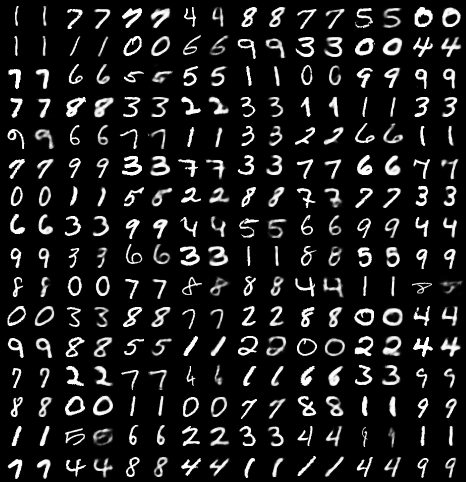 1 1 7 7 7 7 4 4 8 8 7 7 5 5 0 0
1 1 1 1 0 0 6 6 9 9 3 3 0 0 4 4
7 7 6 6 5 5 5 5 1 1 0 0 9 9 9 9
7 7 8 8 3 3 2 2 3 3 1 1 1 1 3 3
9 9 6 6 7 7 1 1 3 3 2 2 6 6 1 1
7 7 9 9 3 3 7 7 3 3 7 7 6 6 7 7
0 0 1 1 5 5 2 2 8 8 7 7 7 7 3 3
6 6 3 3 9 9 4 4 5 5 6 6 9 9 4 4
9 9 3 3 6 6 3 3 1 1 8 8 5 5 9 9
8 8 0 0 7 7 8 8 8 8 4 4 1 1 8
0 0 3 3 8 8 7 7 2 2 8 8 0 0 4 4
9 9 8 8 5 5 1 1 2 2 0 0 2 2 4 4
7 7 2 2 7 7 4 6 1 1 6 6 3 3 9 9
8 8 0 0 1 1 0 0 7 7 8 8 1 1 9 9
1 1 5 6 6 2 2 3 3 4 4 9 9 1 1
7 7 4 4 8 8 4 4 1 1 1 1 4 4 9 9